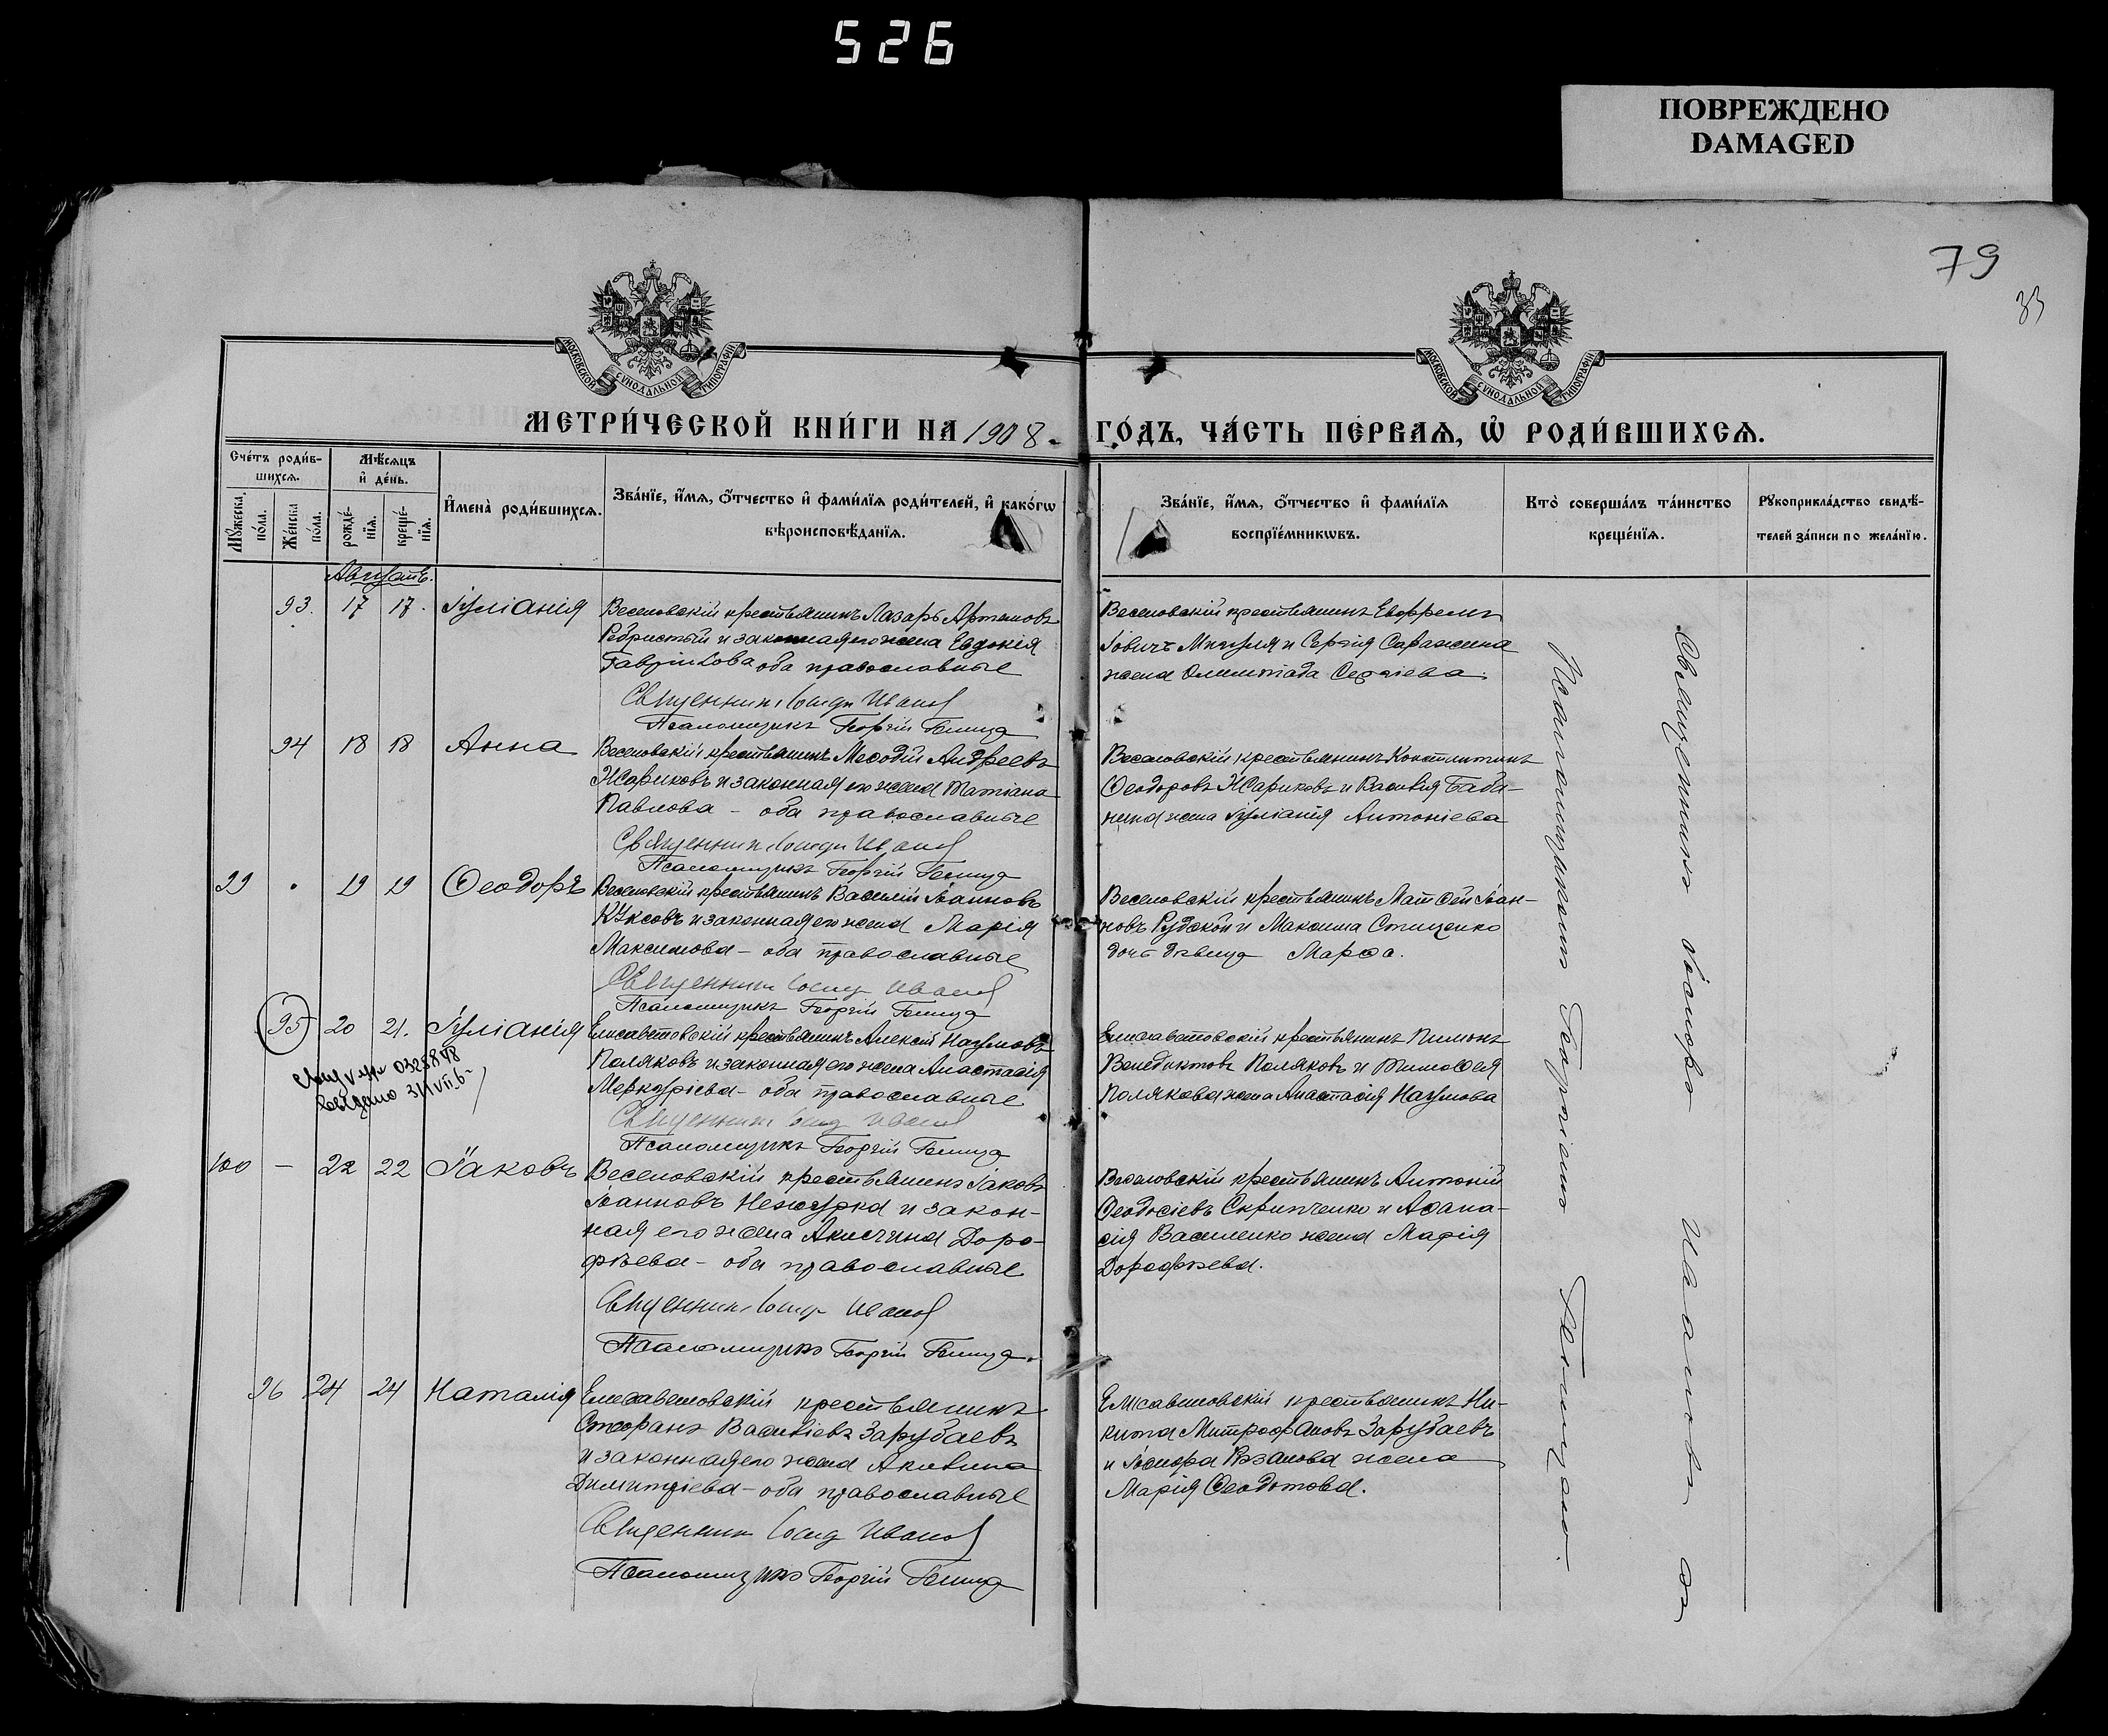 526
ПОВРЕЖДЕНО
DAMAGED
79
33
МОСКОВСКОЙ СУНОДАЛЬНОЙ ТИПОГРАФІИ
МОСКОВСКОЙ СУНОДАЛЬНОЙ ТИПОГРАФІИ
МЕТРИ́ЧЕСКОЙ КНИ́ГИ НА 1908 ГО́ДЪ, ЧА́СТЬ ПЕ́РВАѦ, Ѡ҆ РОДИ́ВШИХСѦ.
Сче́тъ роди́в-
шихсѧ.
Мꙋ́жеска по́ла.
Же́нска по́ла.
Мѣ́сѧцъ
и҆ де́нь.
рожде́-
нїѧ.
креще́-
нїѧ.
И҆мена̀ роди́вшихсѧ.
Зва́нїе, и҆́мѧ, ѻ҆́тчество и҆ фами́лїѧ роди́телей, и҆ како́гѡ
вѣроисповѣ́данїѧ.
Зва́нїе, и҆́мѧ, ѻ҆́тчество и҆ фами́лїѧ
воспрїе́мникѡвъ.
Кто̀ соверша́лъ та́инство
креще́нїѧ.
Рꙋкоприкла́дство свидѣ́-
телей за́писи по жела́нїю.
Августъ.
93. 17 17. Іуліанія
Веселовскій крестьянинъ Лазарь Артемовъ
Ребристый и законная его жена Евдокія
Гавріилова оба православные
Священникъ Іосифъ Ивановъ
Псаломщикъ Георгій
Веселовскій крестьянинъ
Іовичъ и Сергія
жена Олимпіада Сергіева.
94 18 18 Анна
Веселовскій крестьянинъ Меѳодій Андреевъ
Жариковъ и законная его жена Татіана
Павлова – оба православные
Священникъ Іосифъ Ивановъ
Псаломщикъ Георгій
Веселовскій крестьянинъ Константинъ
Ѳеодоровъ Жариковъ и Василія Баба-
нина жена Іуліанія Антоніева
99 19 19 Ѳеодоръ
Веселовскій крестьянинъ Василій Іоанновъ
Куксовъ и законная его жена Марія
Максимова – оба православные
Священникъ Іосифъ Ивановъ
Псаломщикъ Георгій
Веселовскій крестьянинъ Матѳей Іоан-
новъ Рудской и Максима Стищенко
дочь дѣвица Марѳа.
95 20 21. Іуліанія
Елисаветовскій крестьянинъ Алексій Наумовъ
Поляковъ и законная его жена Анастасія
Меркуріева – оба православные
Священникъ Іосифъ Ивановъ
Псаломщикъ Георгій
0325848
выдано
Елисаветовскій крестьянинъ Пименъ
Венедиктовъ Поляковъ и Тимоѳея
Полякова жена Анастасія Наумова
100 – 22 22 Іаковъ
Веселовскій крестьянинъ Іаковъ
Іоанновъ Нежурка и закон-
ная его жена Акилина Доро-
фѣева – оба православные
Священникъ Іосифъ Ивановъ
Псаломщикъ Георгій
Веселовскій крестьянинъ Антоній
Ѳеодосіевъ Скрипченко и Аѳана-
сія Василенко жена Марія
Дорофѣева.
96 24 24 Наталія
Елисаветовскій крестьянинъ
Стефанъ Василіевъ Зарубаевъ
и законная его жена Акилина
Димитріева – оба православные
Священникъ Іосифъ Ивановъ
Псаломщикъ Георгій
Елисаветовскій крестьянинъ Ни-
кита Митрофановъ Зарубаевъ
и жена
Марія Ѳеодотова.
Священникъ Іосифъ Ивановъ съ
Псаломщикомъ Георгіемъ